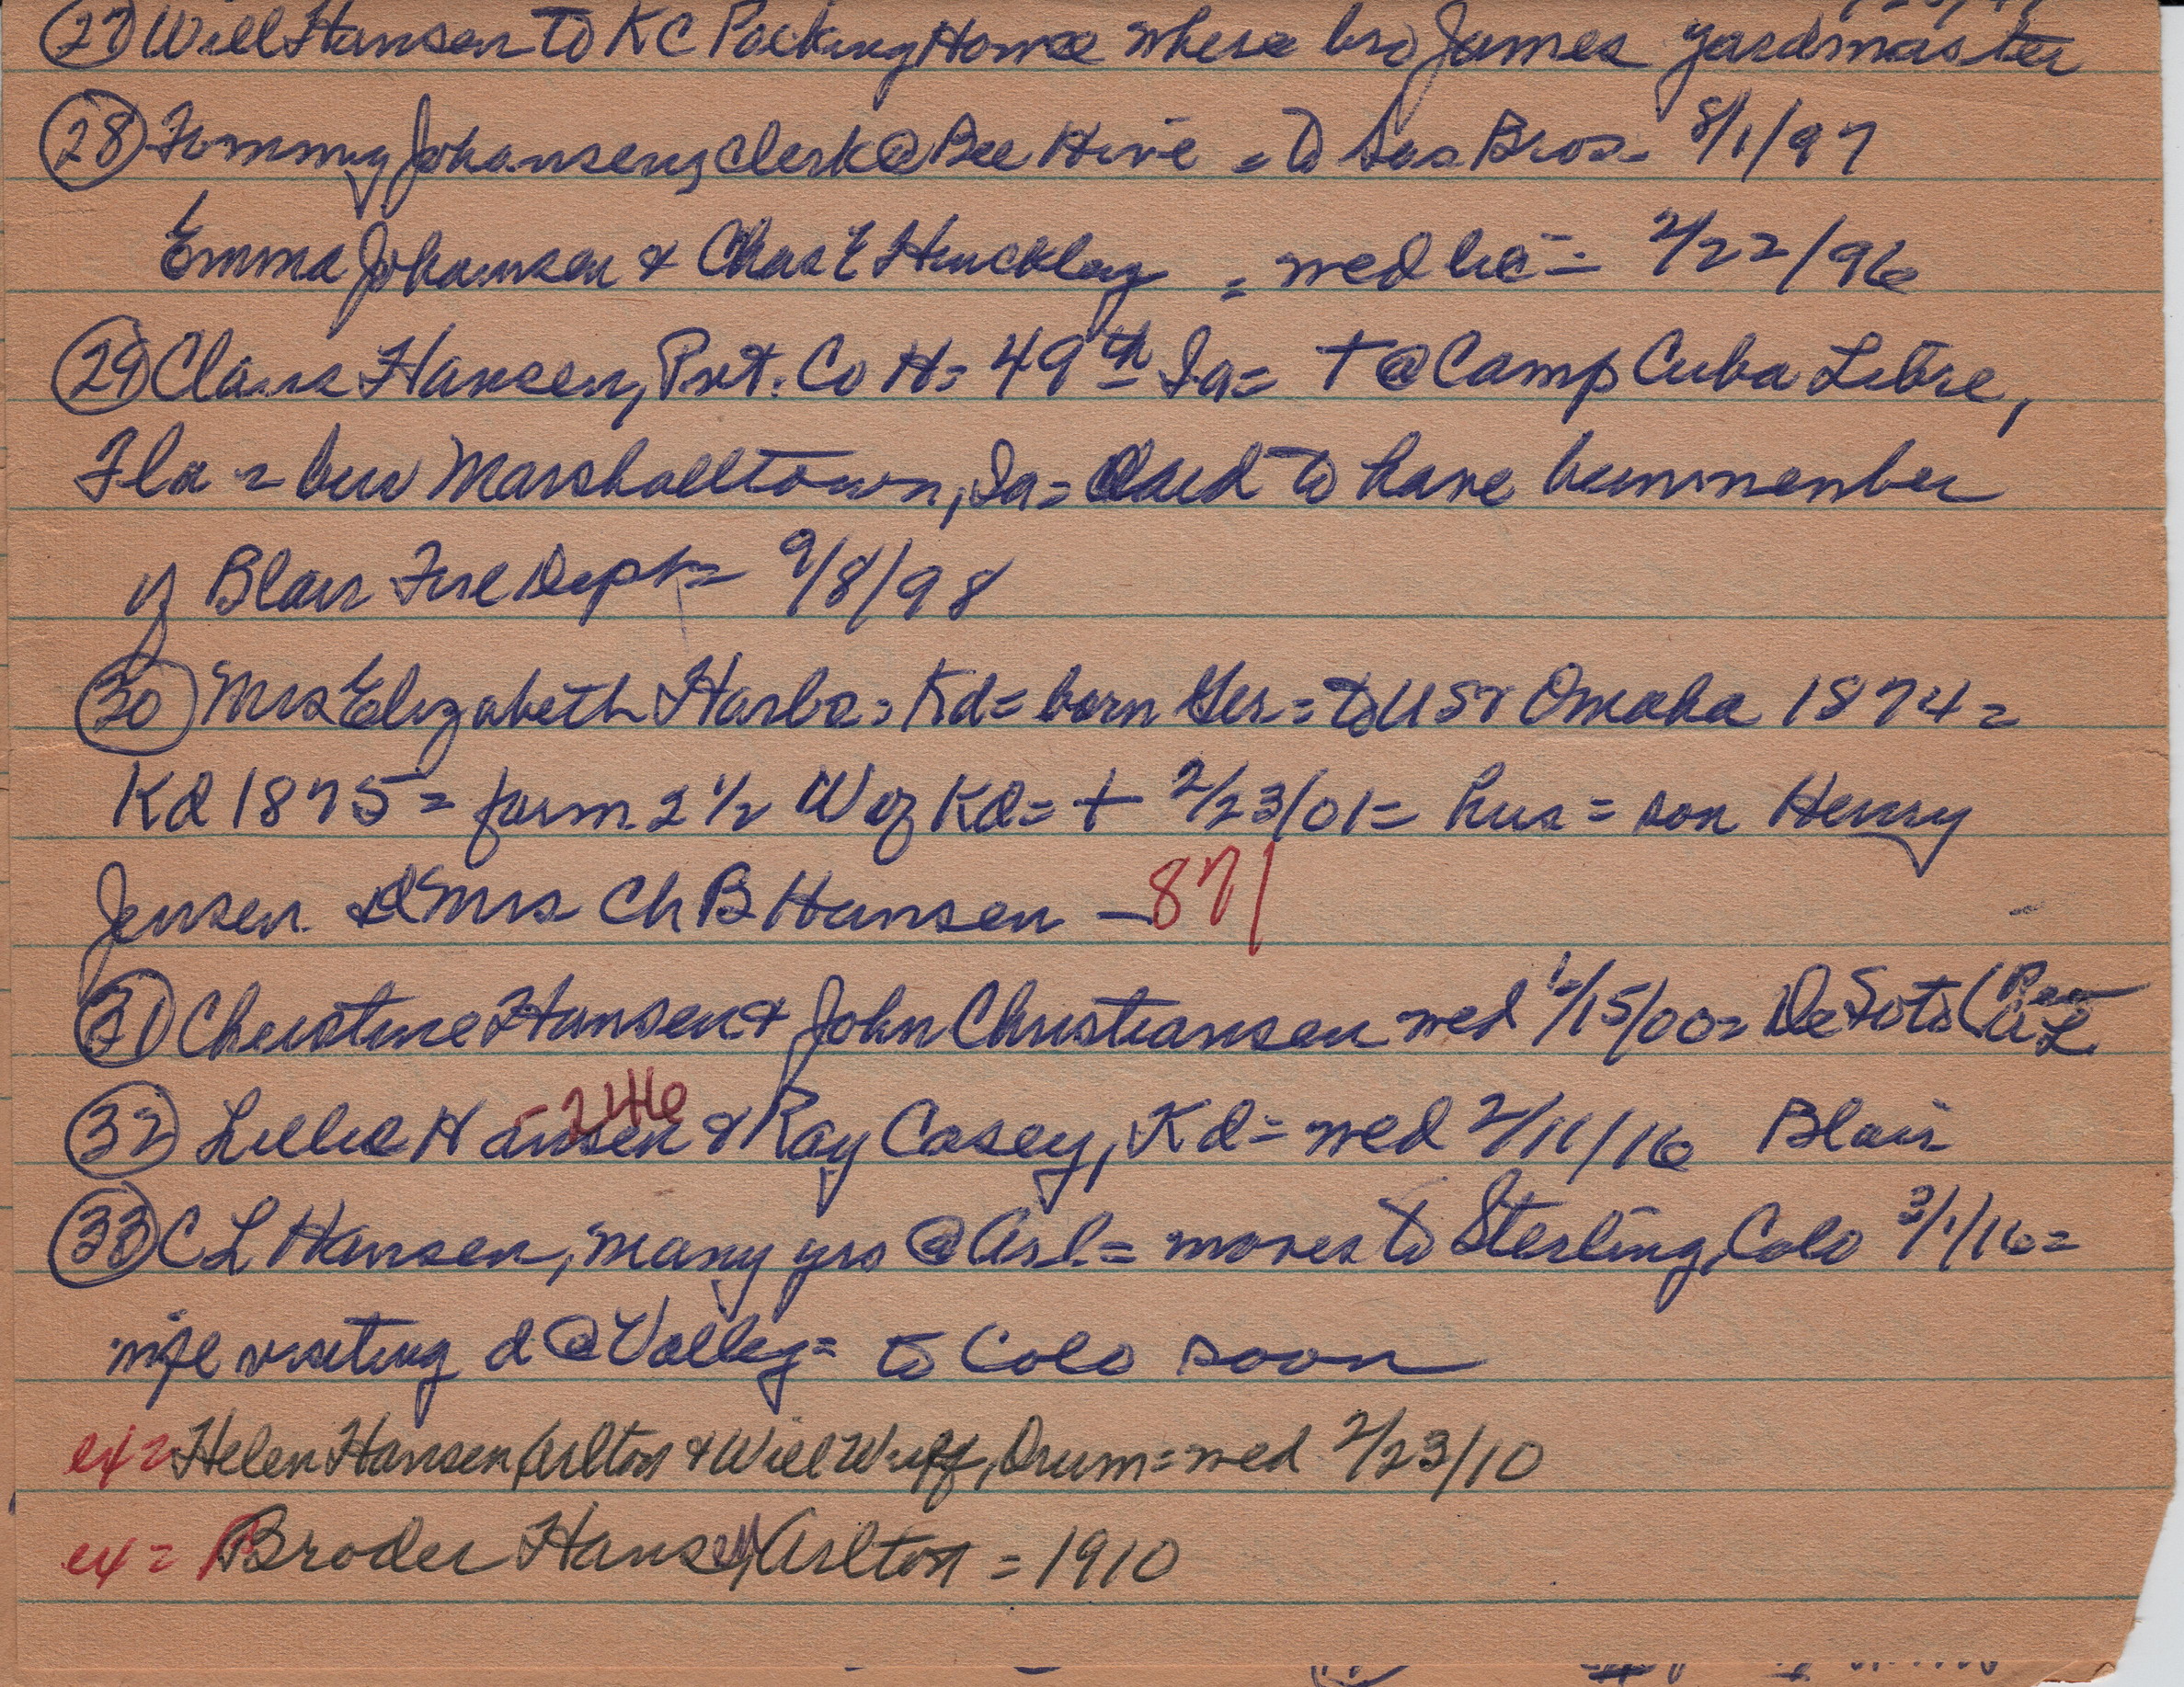 (27) Will Hansen to KC Packing House where bro James yardmaster
(28) Tommy Johansen, clerk @ Bee Hive = to Sas Bros - 8/1/97
Emma Johansen & Chas E Hinckley = wed lic = 2/22/96
(29) Claus Hansen, Pvt. Co H = 49th Ia = + @ Camp Cuba Libre,
Fla = bur Marshalltown, Ia = said to have been member
of Blair Fire Dept = 9/8/98
(30) Mrs Elizabeth Harbo, Kd = born Ger = to US & Omaha 1874 =
Kd 1875 = farm 2 1/2 W of Kd = + 2/23/01 = hus = son Henry
Jensen & Mrs Ch B Hansen - 871
(31) Christine Hansen & John Christiansen wed /15/00 = DeSoto
(32) Lillie Hansen - 246 & Ray Casey, Kd = wed 2/11/16 Blair
(33) C L Hansen, many yrs @ Arl. = moves to Sterling, Colo 3/1/16 =
wife visiting d @ Valley = to Colo soon
ex = Helen Hansen, Arlton & Will Wulf, Drum = wed 2/23/10
ex = Broder Hansen, Arlton = 1910